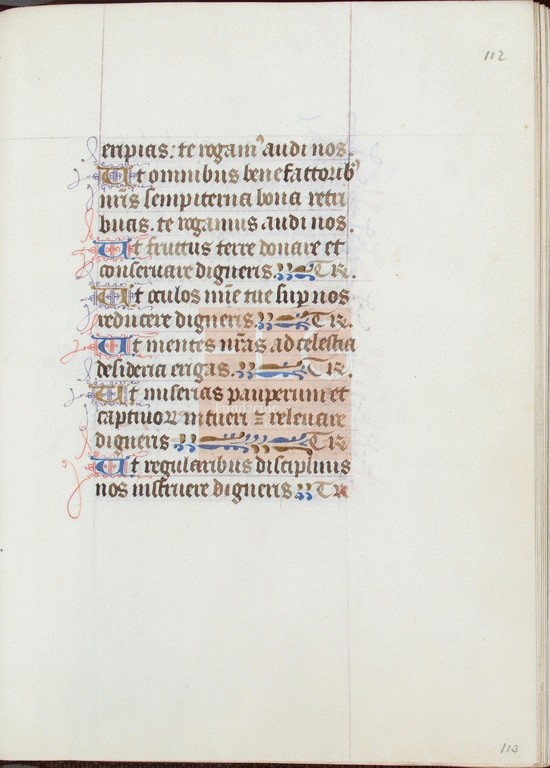 112
eripias: te rogam' audi nos.
Ut omnibus benefactorib'
nr̄is sempiterna bona retri
buas. te rogamus audi nos.
Ut fructus terre donare et
conseruare digneris. T R.
Ut oculos mi͞e tue sup nos
reducere digneris T R.
Ut mentes nr̄as ad celestia
desideria erigas. T R.
Ut miserias pauperum et
captiuoꝝ intueri ⁊ releuare
digneris T R
Ut regularibus disciplinis
nos instruere digneris T R
113